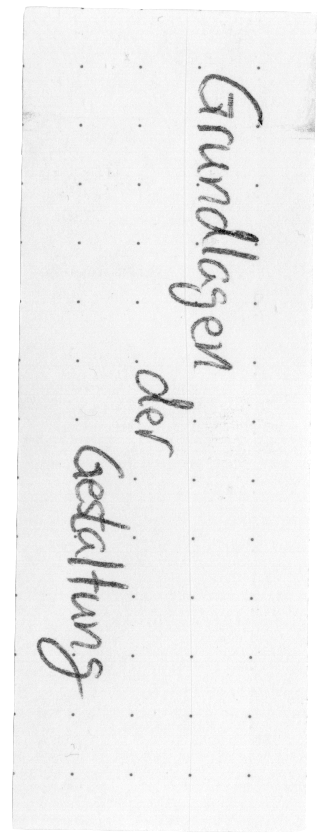 Grundlagen
der
Gestaltung